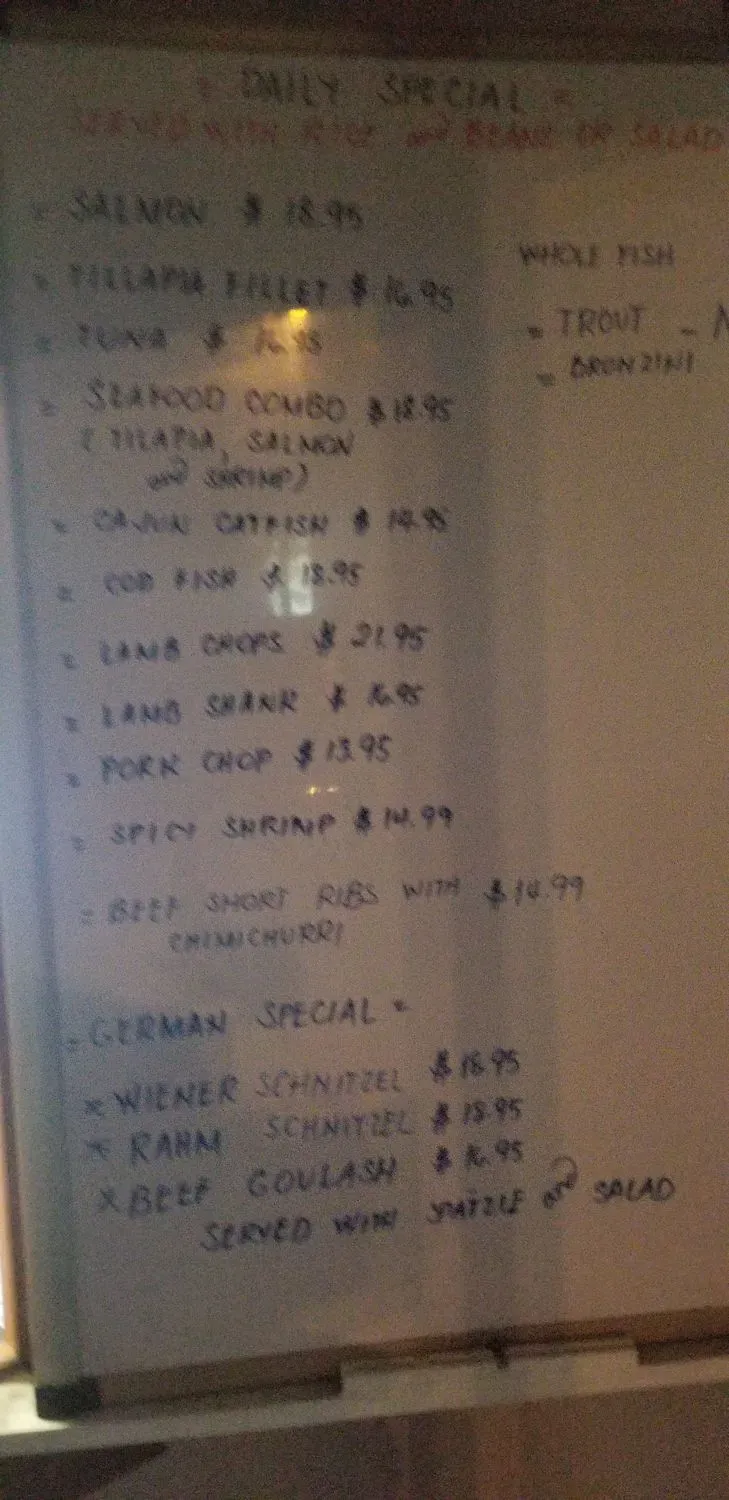 = DAILY SPECIAL =
SERVED WITH RICE and BEANS OR SALAD
= SALMON $ 18.95
= TILLAPIA FILLET $ 16.95
= TUNA $
= SEAFOOD COMBO $ 18.95
( TILAPIA, SALMON
and SHRIMP)
= CAJUN CATFISH $ 14.95
= COD FISH $ 18.95
= LAMB CHOPS $ 21.95
= LAMB SHANK $ 16.95
= PORK CHOP $ 13.95
= SPICY SHRIMP $ 14.99
= BEEF SHORT RIBS WITH $ 14.99
CHIMICHURRI
= GERMAN SPECIAL =
* WIENER SCHNITZEL $ 18.95
* RAHM SCHNITZEL $ 18.95
* BEEF GOULASH $ 16.95
SERVED WITH SPATZLE and SALAD
WHOLE FISH
= TROUT -
= BRONZINI